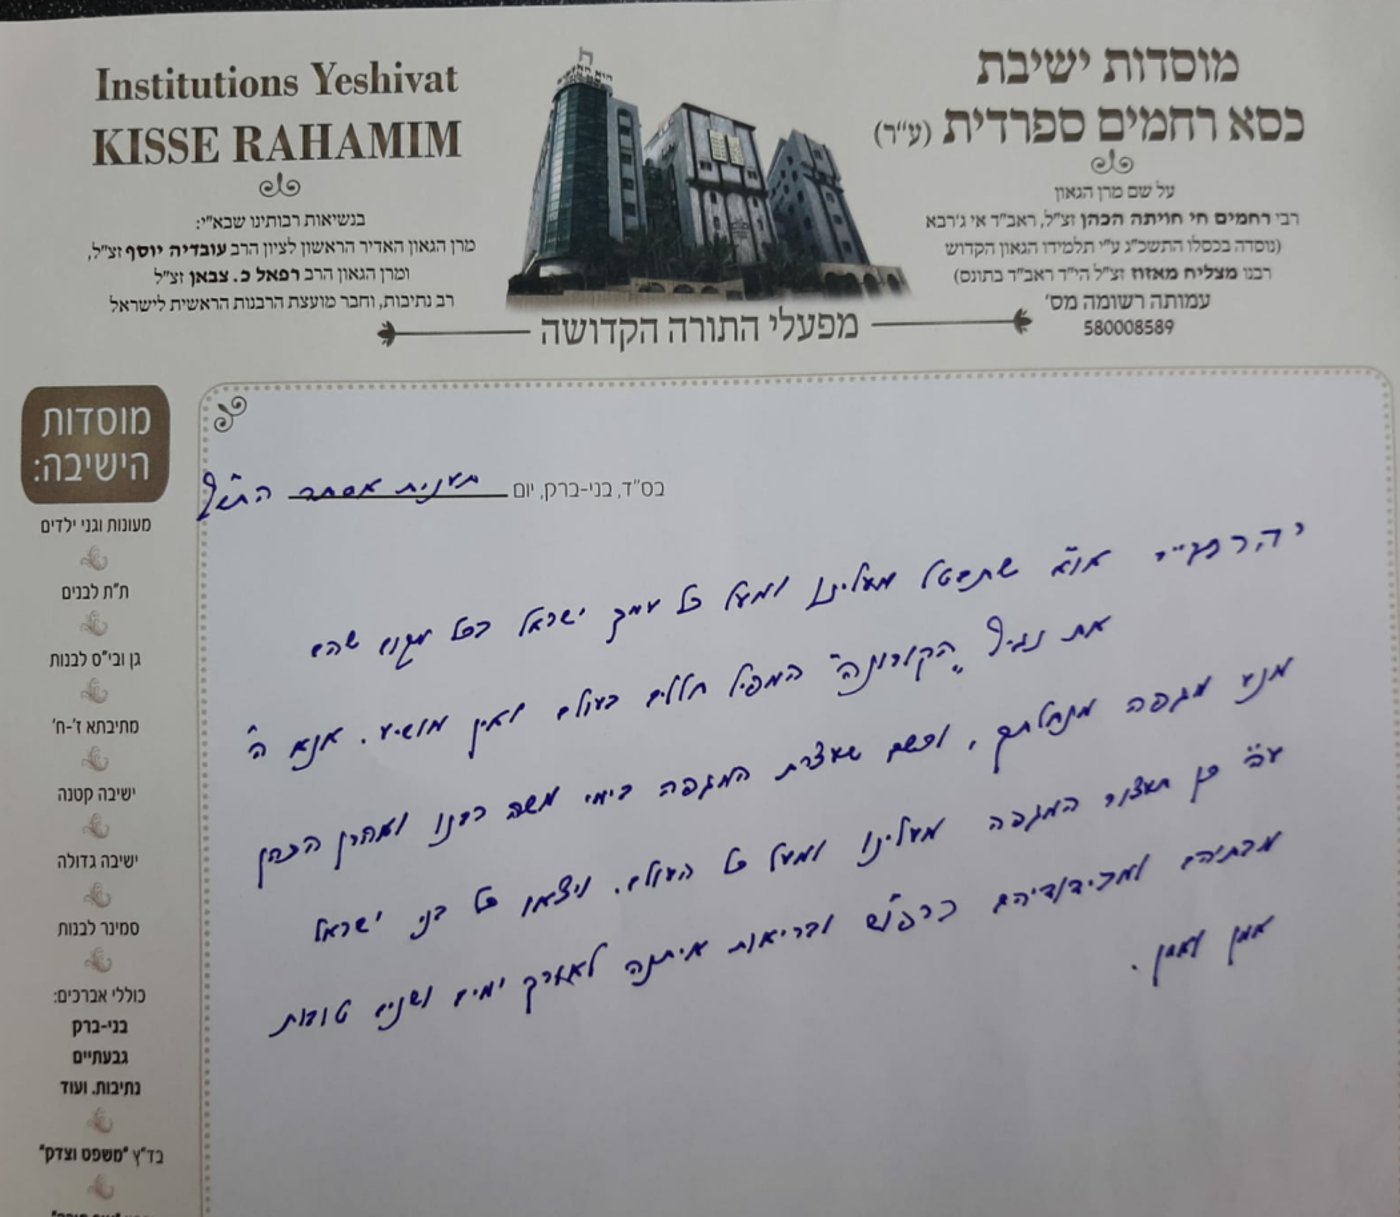 מוסדות ישיבת
כסא רחמים ספרדית (ע"ר)
על שם מרן הגאון
רבי רחמים חי חויתה הכהן זצ"ל, ראב"ד אי ג'רבא
(נוסדה בכסלו התשכ"ג ע"י תלמידו הגאון הקדוש
רבנו מצליח מאזוז זצ"ל הי"ד ראב"ד בתונס)
עמותה רשומה מס'
580008589
Institutions Yeshivat
KISSE RAHAMIM
בנשיאות רבותינו שבא"י:
מרן הגאון האדיר הראשון לציון הרב עובדיה יוסף זצ"ל,
ומרן הגאון הרב רפאל כ. צבאן זצ"ל
רב נתיבות, וחבר מועצת הרבנות הראשית לישראל
מפעלי התורה הקדושה
בס"ד, בני-ברק, יום תענית אסתר התש"ף
יהרמי"י או"א שתבטל מעלינו ומעל כל עמך ישראל בכל מקום שהם
את נגיף "הקורונה" המפיל חללים בעולם ואין מושיע. אנא ה'
מנע מגפה מנחלתך, וכשם שעצרת המגפה בימי משה רבנו ואהרן הכהן
ע"ה כן תעצור המגפה מעלינו ומעל כל העולם. ויצאו כל בני ישראל
מבתיהם ומבידודיהם ברפו"ש ובריאות איתנה לאורך ימים ושנים טובות
אמן ואמן.
מוסדות
הישיבה:
מעונות וגני ילדים
ת"ת לבנים
גן ובי"ס לבנות
מתיבתא ז'-ח'
ישיבה קטנה
ישיבה גדולה
סמינר לבנות
כוללי אברכים:
בני-ברק
גבעתיים
נתיבות. ועוד
בד"ץ "משפט וצדק"